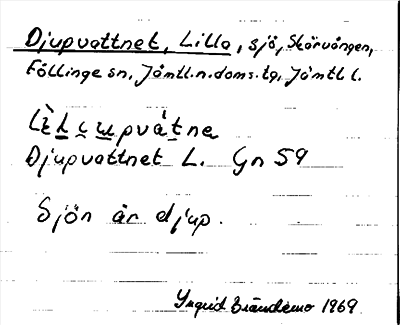 Djupvattnet, Lilla, sjö, Skärvången,
Föllinge sn, Jämtl.n.doms.tg, Jämtl l.
Djupvattnet L. Gn 59
Sjön är djup.
Ingrid Brändemo 1969.